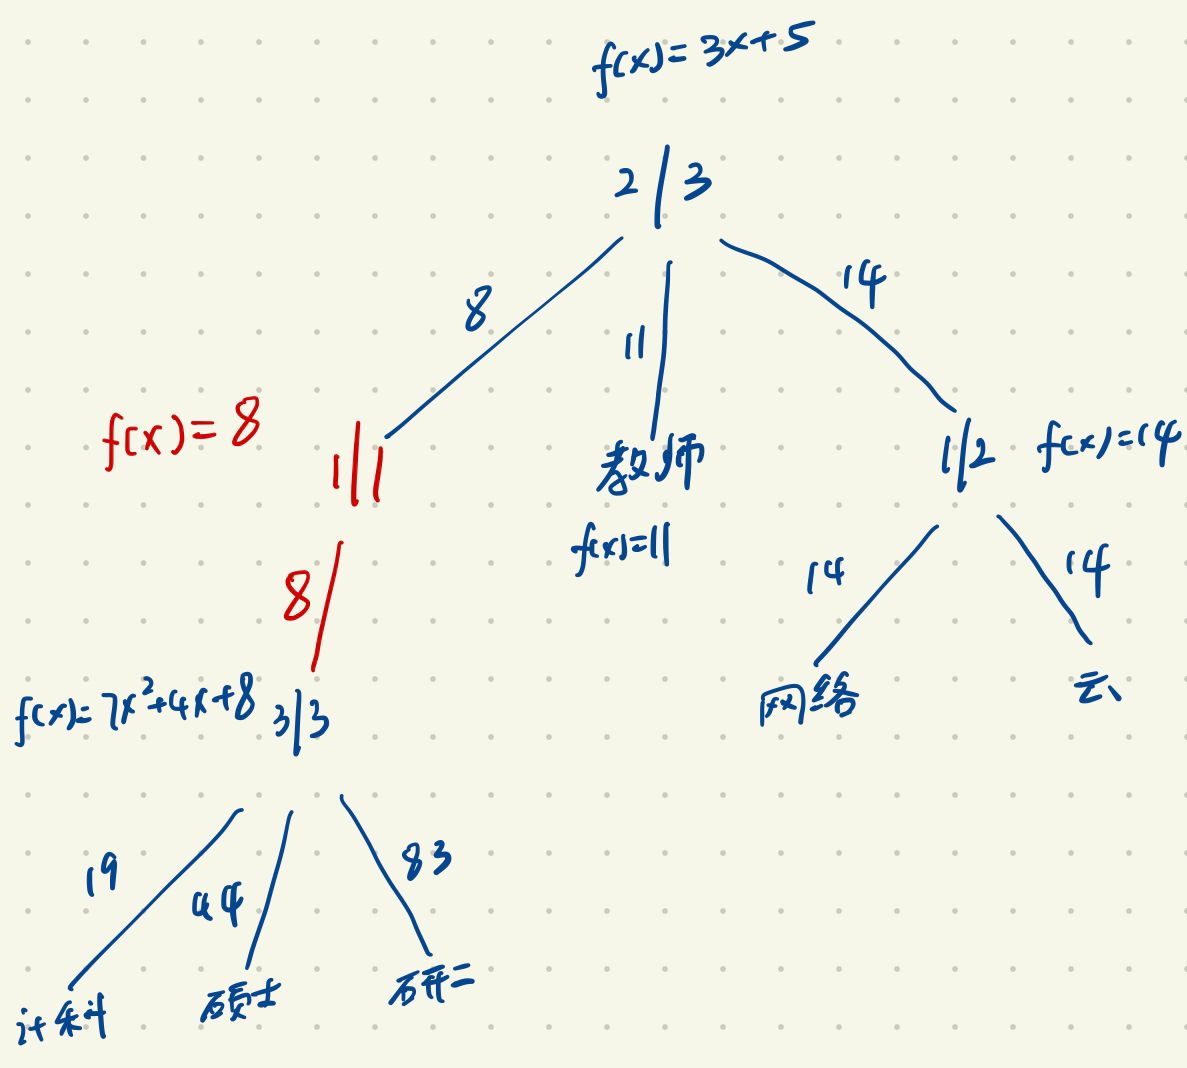 f(x)=3x+5
2/3
8
11
14
f(x)=8
1/1
教师
1/2
f(x)=14
f(x)=11
8
14
14
f(x)=7x²+4x+8
3/3
网络
云
19
44
83
计科
硕士
研二